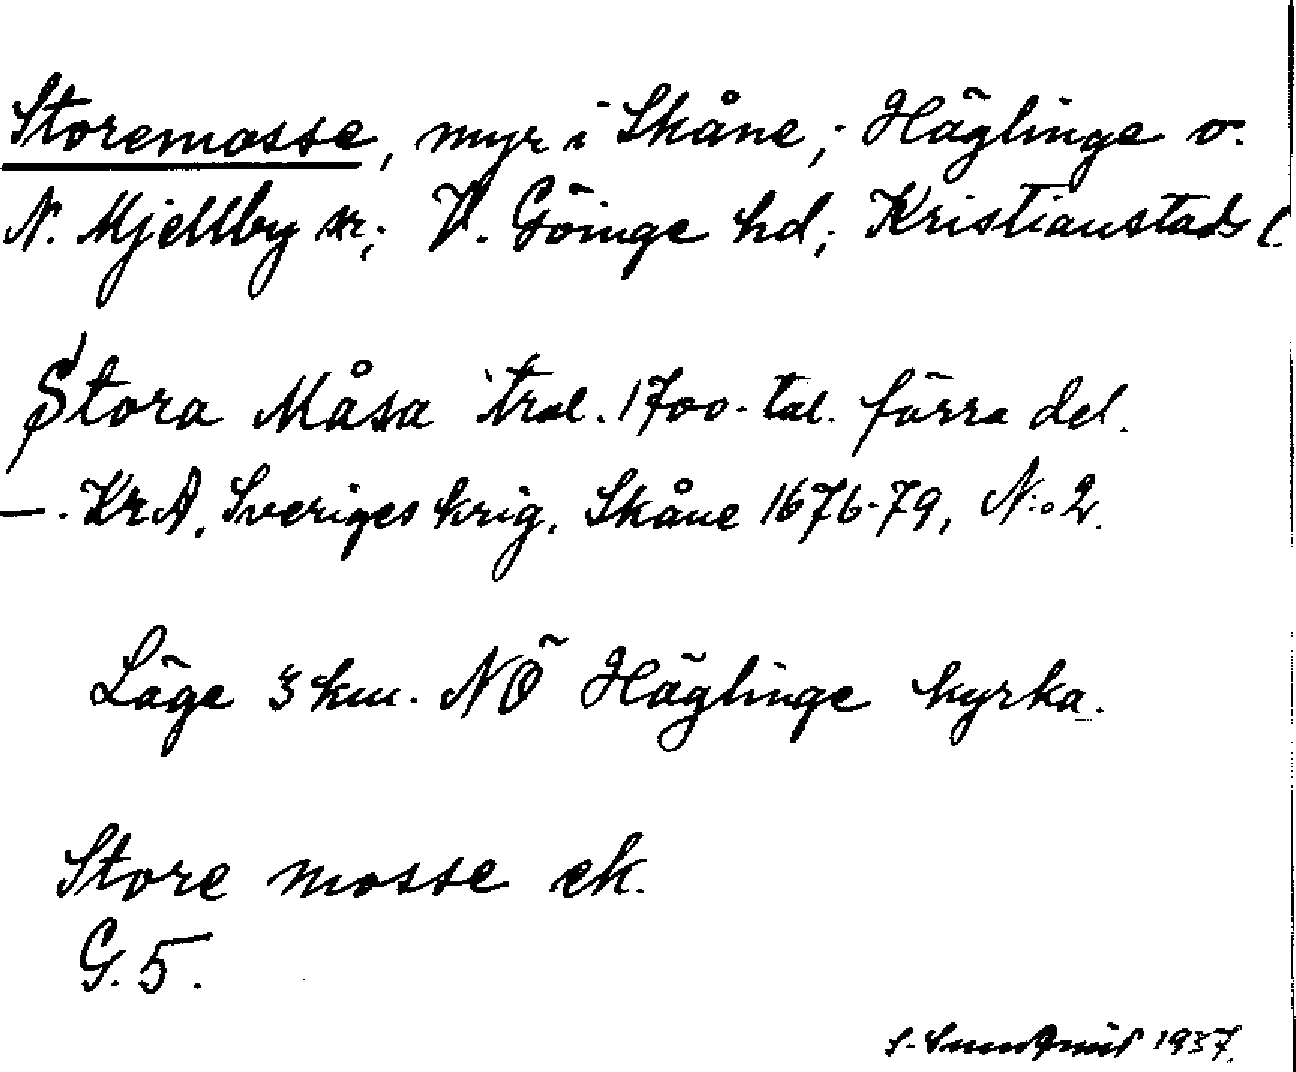 Storemosse, myr i Skåne; Häglinge o.
N. Mjellby sn; V. Göinge hd; Kristianstads l.
Stora Måsa trol. 1700-tal. förra del.
—. KrA. Sveriges krig. Skåne 1676-79, N:o 2.
Läge 3 km. NÖ Häglinge kyrka.
Store mosse ek.
G. 5.
S. Sundqvist 1937.